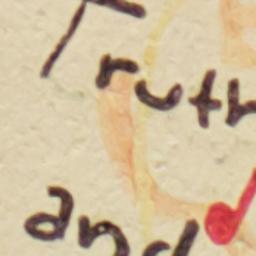 Truth
and